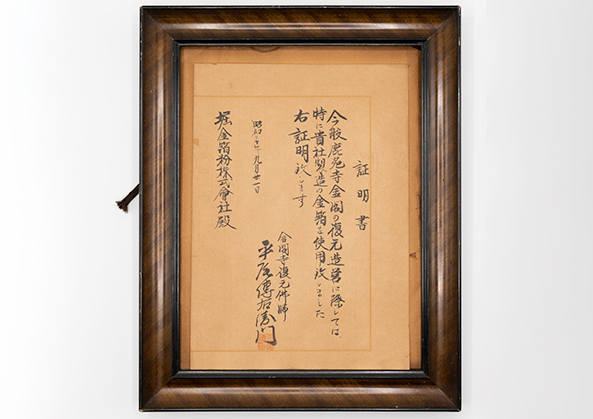 証明書
今般鹿苑寺金閣の復元造営に際しては、
特に貴社製造の金箔を使用致しました
右証明致します
昭和三十年九月廿一日
堀金箔粉株式會社殿
金閣寺復元佛師
平居傳右衛門